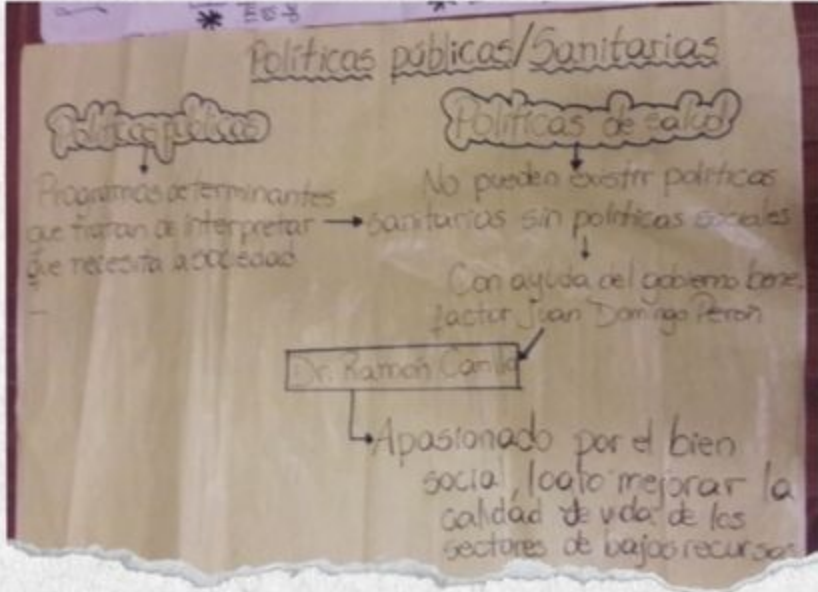 Políticas públicas/Sanitarias
Políticas públicas
Políticas de salud
Programas determinantes
que tratan de interpretar
que necesita la sociedad
No pueden existir políticas
sanitarias sin políticas sociales
Con ayuda del gobierno bene
factor Juan Domingo Perón
Dr. Ramón Carrillo
Apasionado por el bien
social, logro mejorar la
calidad de vida de los
sectores de bajos recursos